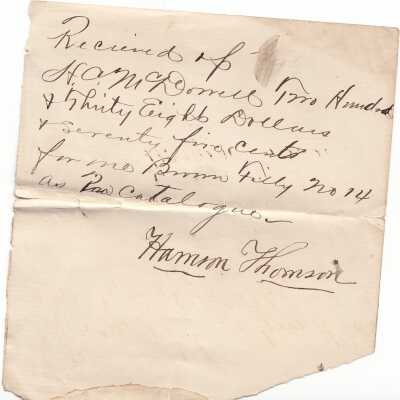 Recieved of
H. A. McDowell Two Hundred
& Thirty Eight Dollars
& seventy five cents
for one Brown Filly No 14
as Per catalogue
Harrison Thomson